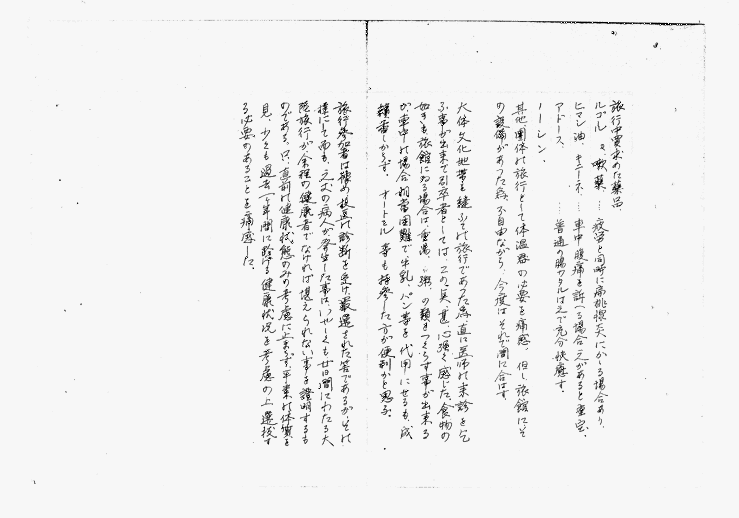 旅行中買求めた薬品
ルゴール 吸薬 … 疲労と同時に扁桃腺炎にかゝる場合あり、
ヒマシ油、キニーネ、 … 車中腹痛を訴へる場合之があると重宝、
アドース、 … 普通の腸カタルは之で充分快癒す。
ノーレン、
其他團体の旅行として体温器の必要を痛感、但し旅館にそ
の設備があった為、不自由ながら、今度はそれで間に合はす。
大体文化地帯を縫ふての旅行であった為、直に医師の来診を乞
ふ事が出来て引卒者としては、この点、甚心強く感じた。食物の
如きも旅館にゐる場合は、重湯、粥、の類をつくらす事が出来る
が、車中の場合相当困難で牛乳、パン等を代用にせるも、成
績香しからず。オートミル等も持参した方が便利かと思ふ。
旅行参加者は豫め校医の診断を受け厳選された筈であるが、それ
にても尚も、之丈の病人が発生した事は、いやしくも廿日間にわたる大
陸旅行が余程の健康者でなければ堪えられない事を證明するも
のである。只、直前の健康状態のみの考慮に止まらず、平素の体質を
見、少くも過去一ケ年間に於ける健康状況を考慮の上選抜す
る必要のあることを痛感した。